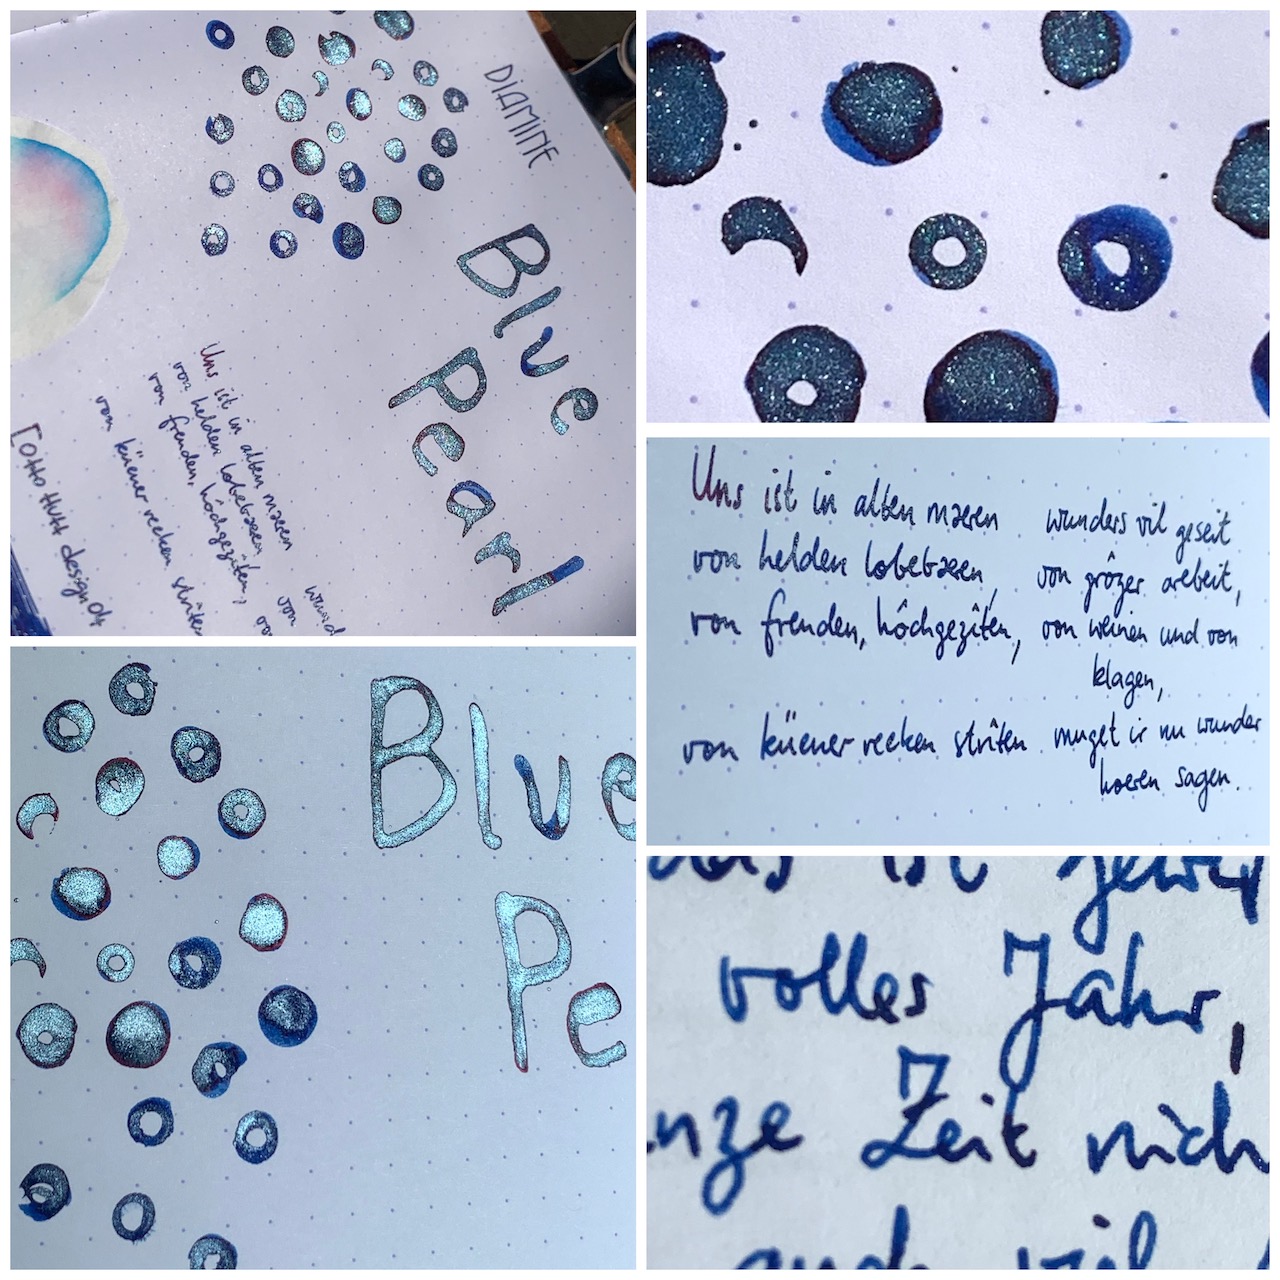 DIAMINE
Blue
Pearl
Uns ist in alten mæren
von helden lobebæren
von freuden, hôchgezîten,
von küener recken strîten
wund
von
von
[Otto Hutt design04
Uns ist in alten mæren wunders vil geseit
von helden lobebæren, von grôzer arebeit,
von freuden, hôchgezîten, von weinen und von
klagen,
von küener recken strîten muget ir nu wunder
hoeren sagen.
Blue
Pe
das ist gewiß
volles Jahr,
nze Zeit nich
auch viel